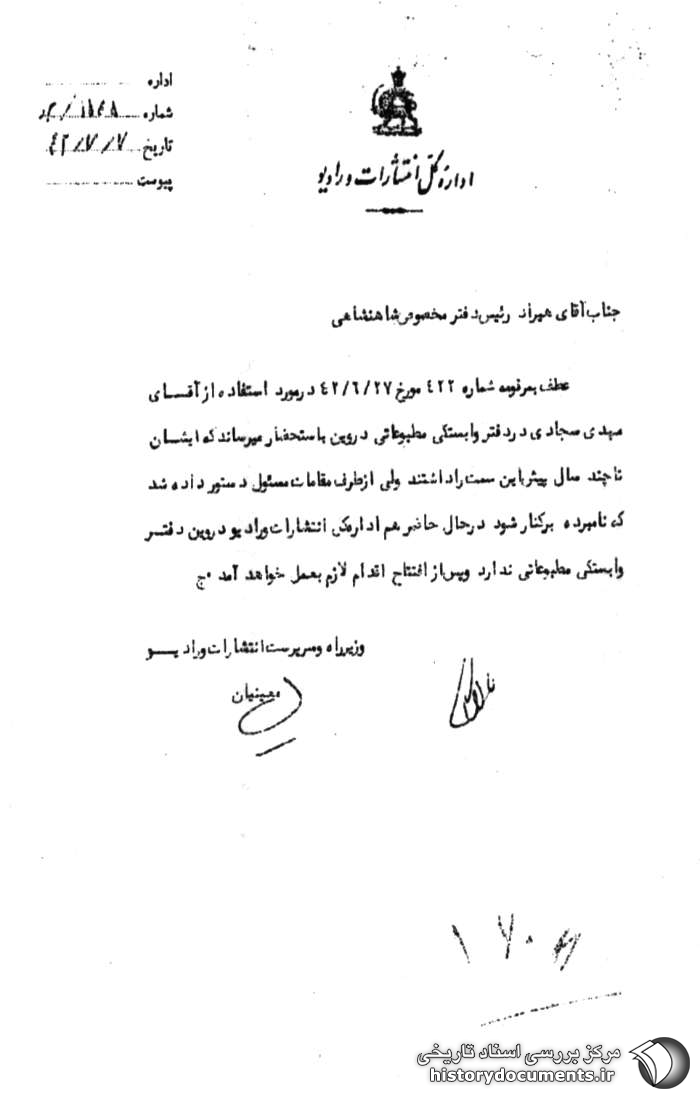 اداره
شماره
تاریخ ۴۲/۷/۷
پیوست
اداره کل انتشارات و رادیو
جناب آقای هیراد رئیس دفتر مخصوص شاهنشاهی
عطف بمرقومه شماره ۴۲۲ مورخ ۴۲/۶/۲۷ در مورد استفاده از آقای
مهدی سجادی در دفتر وابستگی مطبوعاتی در وین باستحضار میرساند که ایشان
تا چند سال پیش این سمت را داشتند ولی از طرف مقامات مسئول دستور داده شد
که نامبرده برکنار شود در حال حاضر هم اداره کل انتشارات و رادیو در وین دفتر
وابستگی مطبوعاتی ندارد و پس از افتتاح اقدام لازم بعمل خواهد آمد ج
وزیر راه و سرپرست انتشارات و رادیو
معینیان
مرکز بررسی اسناد تاریخی
historydocuments.ir